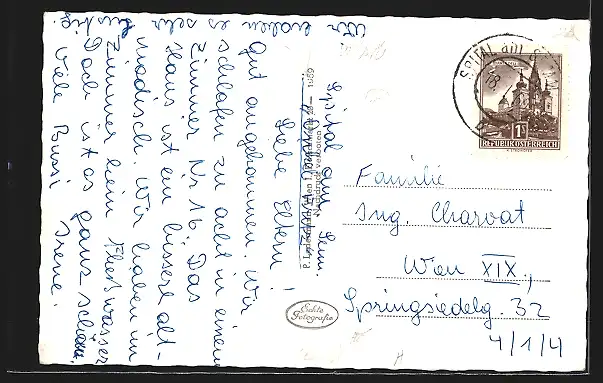 Spital am Sem.
Liebe Eltern!
Gut angekommen. Wir
schlafen zu acht in einem
Zimmer Nr 16. Das
Haus ist ein bissere alt-
modisch. Wir haben im
Zimmer kein Fließwasser
Doch ist es ganz schön.
Viele Bussi
Irene.
Wir
es sehr
lustig.
Nachdruck verboten
1959
Echte
Fotografie
SPITAL AM
18.
1S
REPUBLIK ÖSTERREICH
Familie
Ing. Charvat
Wien XIX.,
Springsiedelg. 32
4/1/4